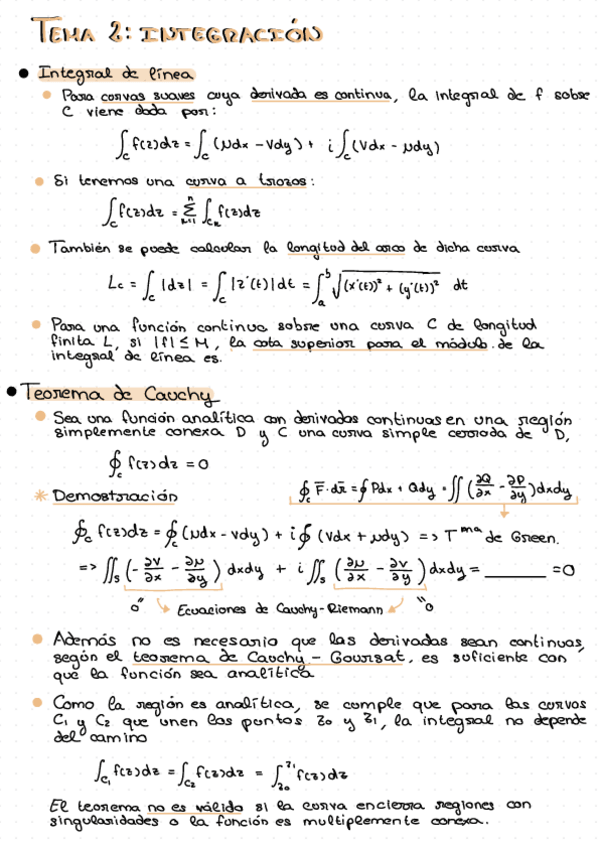 TEMA 2: INTEGRACIÓN
• Integral de línea
• Para curvas suaves cuya derivada es continua, la integral de f sobre
C viene dada por:
∫_C f(z)dz = ∫_C (udx - vdy) + i ∫_C (vdx - udy)
• Si tenemos una curva a trozos:
∫_C f(z)dz = Σ_{k=1}^{n} ∫_{C_k} f(z)dz
• También se puede calcular la longitud del arco de dicha curva
L_C = ∫_C |dz| = ∫_C |z'(t)|dt = ∫_a^b √((x'(t))² + (y'(t))²) dt
• Para una función continua sobre una curva C de longitud
finita L, si |f| ≤ M, la cota superior para el módulo de la
integral de línea es.
• Teorema de Cauchy
• Sea una función analítica con derivadas continuas en una región
simplemente conexa D y C una curva simple cerrada de D,
∮_C f(z)dz = 0
* Demostración
∮_C F̅·dr̅ = ∮ Pdx + Qdy = ∬ (∂Q/∂x - ∂P/∂y) dxdy
∮_C f(z)dz = ∮_C (udx - vdy) + i ∮ (vdx + udy) => T^ma de Green.
=> ∬_S (-∂v/∂x - ∂u/∂y) dxdy + i ∬_S (∂u/∂x - ∂v/∂y) dxdy = ______ = 0
0" Ecuaciones de Cauchy-Riemann "0
• Además no es necesario que las derivadas sean continuas,
según el teorema de Cauchy - Goursat, es suficiente con
que la función sea analítica
• Como la región es analítica, se cumple que para las curvas
C₁ y C₂ que unen los puntos z₀ y z₁, la integral no depende
del camino
∫_{C₁} f(z)dz = ∫_{C₂} f(z)dz = ∫_{z₀}^{z₁} f(z)dz
El teorema no es válido si la curva encierra regiones con
singularidades o la función es multiplemente conexa.